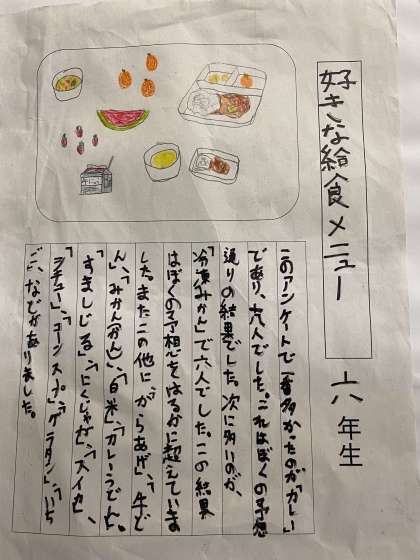 好きな給食メニュー
六年生
このアンケートで一番多かったのが「カレー」
であり、六人でした。これはぼくの予想
通りの結果でした。次に多いのが、
「冷凍みかん」で六人でした。この結果
はぼくの予想をはるかに超えていま
した。またこの他に、「からあげ」、「牛ど
ん」、「みかん(かん)」、「白米」、「カレーうどん」、
「すましじる」、「にくじゃが」、「スイカ」、
「シチュー」、「コーンスープ」、「グラタン」、「いち
ご」、などがありました。